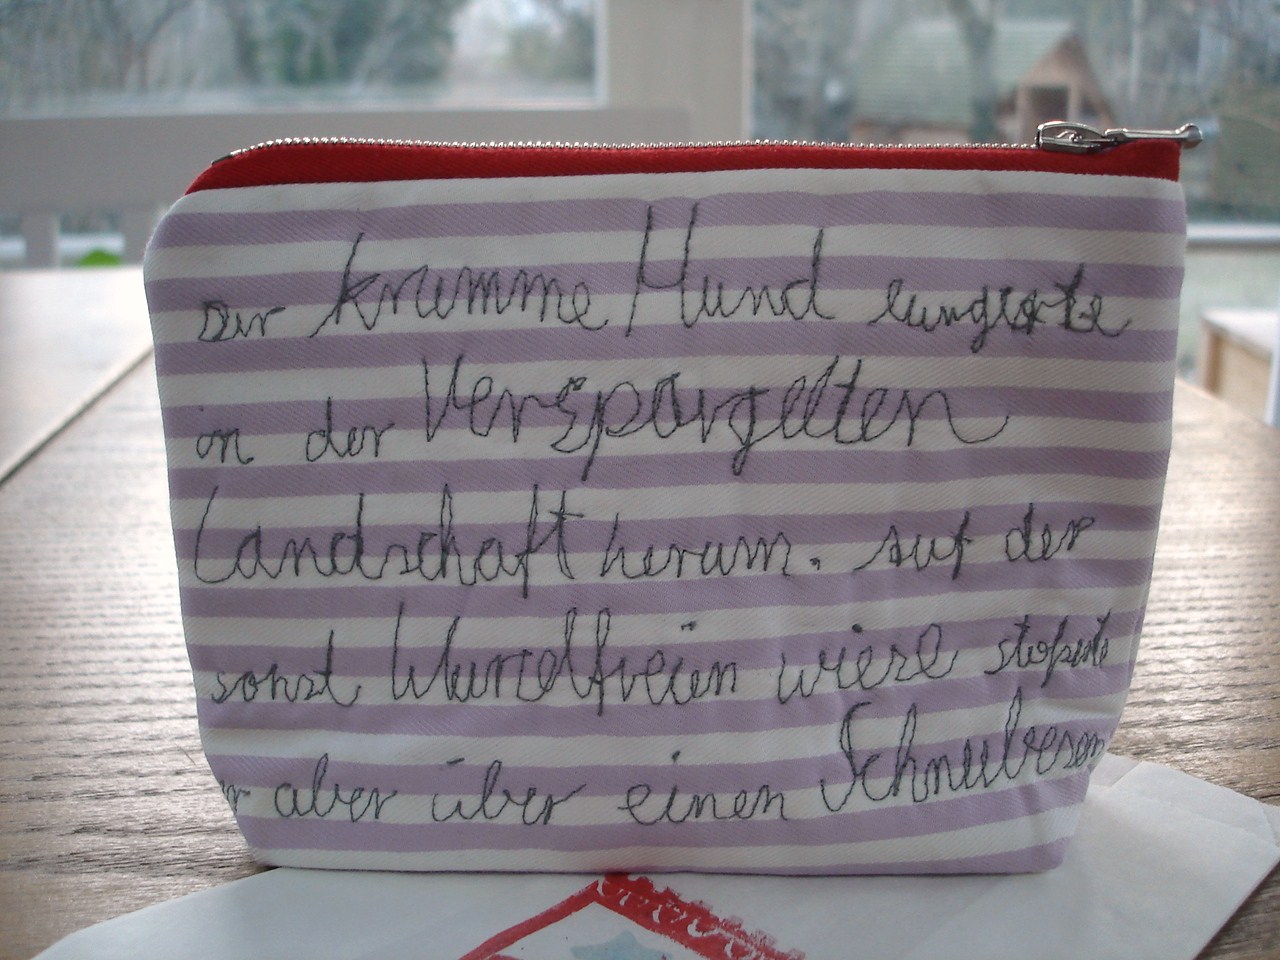 Der krumme Hund lungerte
in der Verspargelten
Landschaft herum. auf der
sonst Wurzelfreien wiese stolperte
er aber über einen Schneebesen